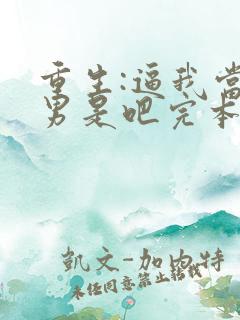 重生:逼我当
男杲吧完本
凱文-加内特
未经同意禁止转载